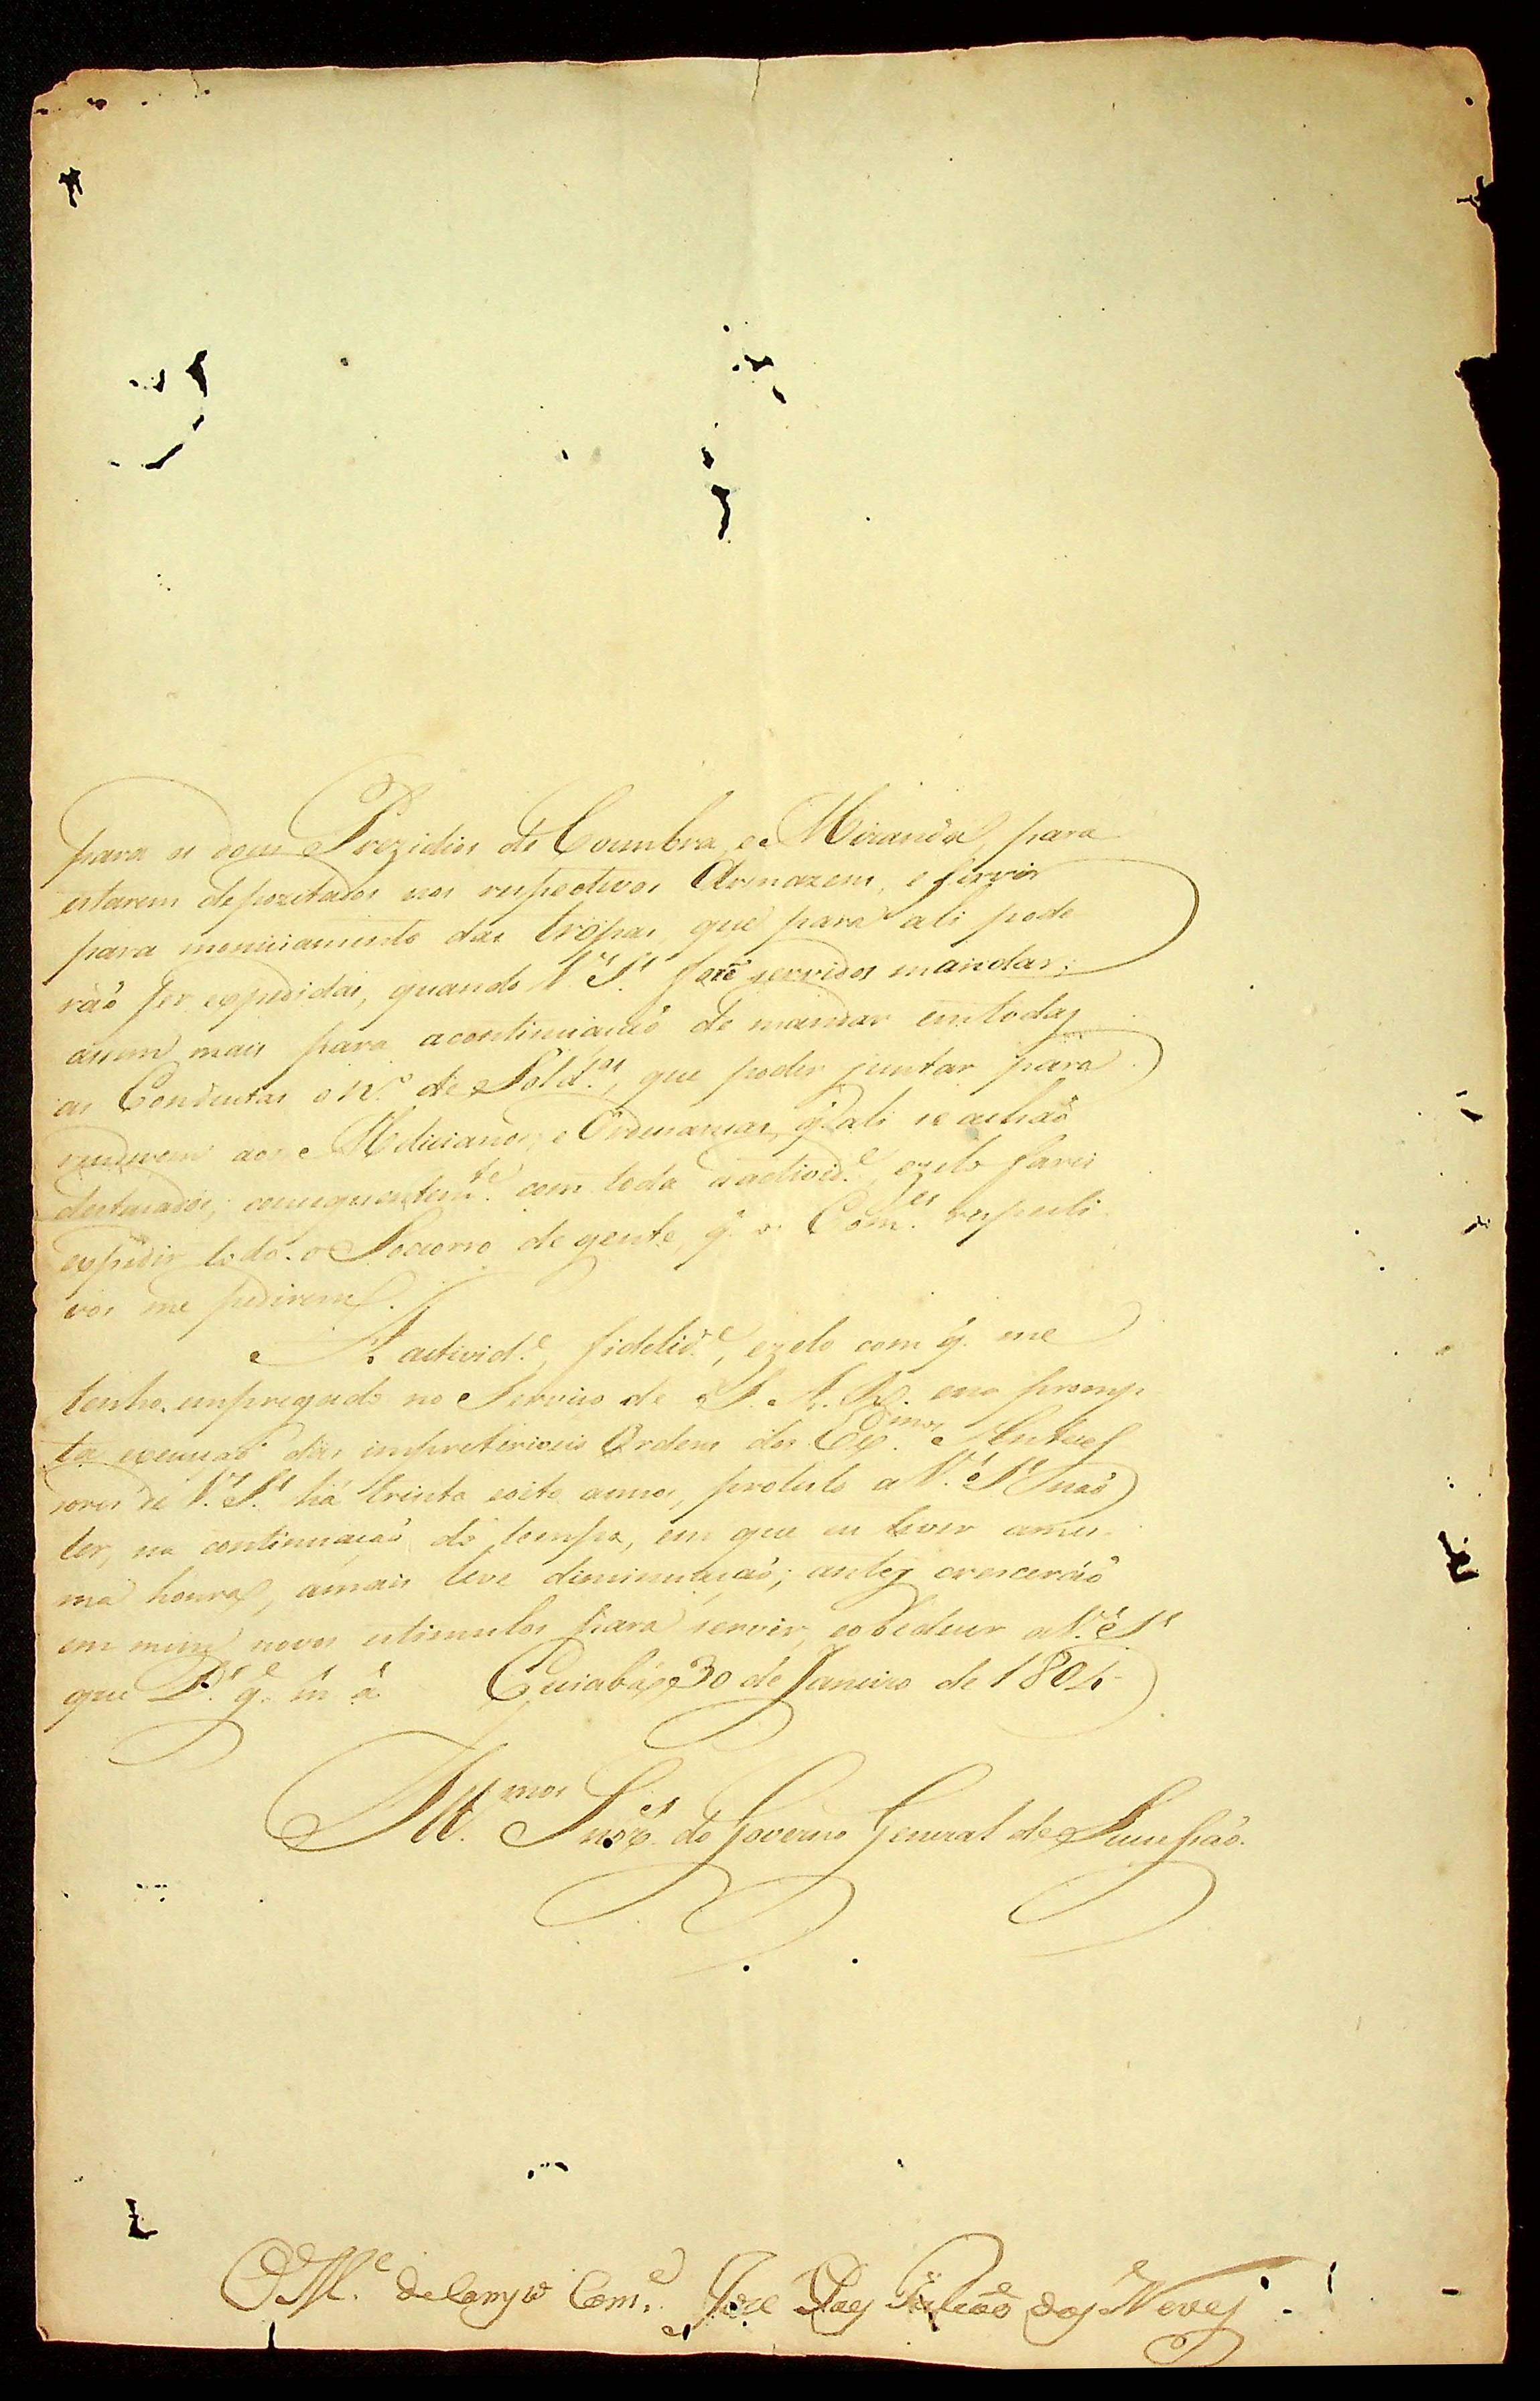 para os dous Prezidios de Coimbra, e Miranda, para
estarem depozitados nos respectivos Armazens, e servir
para moniciamento das tropas, que para ali pode
rão ser expedidas, quando V.ˢ S.ˢ forẽ servidos mandar;
assim mais para acontinuação de mandar em todas
as Condutas o N.º de Sold.ºˢ, que poder juntar para
renderem aos Milicianos, e Ordenanças, q̃ ali se achão
destacados; consequentem.ᵗᵉ com toda a activid.ᵉ, ezelo farei
expedir todo o Socorro de gente, q̃ os Com.ᵉˢ respecti
vos me pedirem.
A activid.ᵉ, fidelid.ᵉ, ezelo com q̃ me
tenho empregado no Serviço de S. A. R. ena promp
ta execução das impreteriveis Ordens dos Ex.ᵐᵒˢ Anteces
sores de V.ˢ S.ˢ há trinta eoito annos, protesto a V.ˢ S.ˢ não
ter, na continuação do tempo, em que eu tiver a mes
ma honra, amais leve diminuição; antes crescerão
em mim novos estimulos para servir, eobedecer a V.ˢ S.ˢ
que D.ˢ g.ᵉ m̃ ã Cuiabá 30 de Janeiro de 1804
Ill.ᵐᵒˢ Snr.ᵉˢ do Governo General de Sucessão.
O M.ᵉ de Campo Com.ᵉ Joze Paes Falcão das Neves